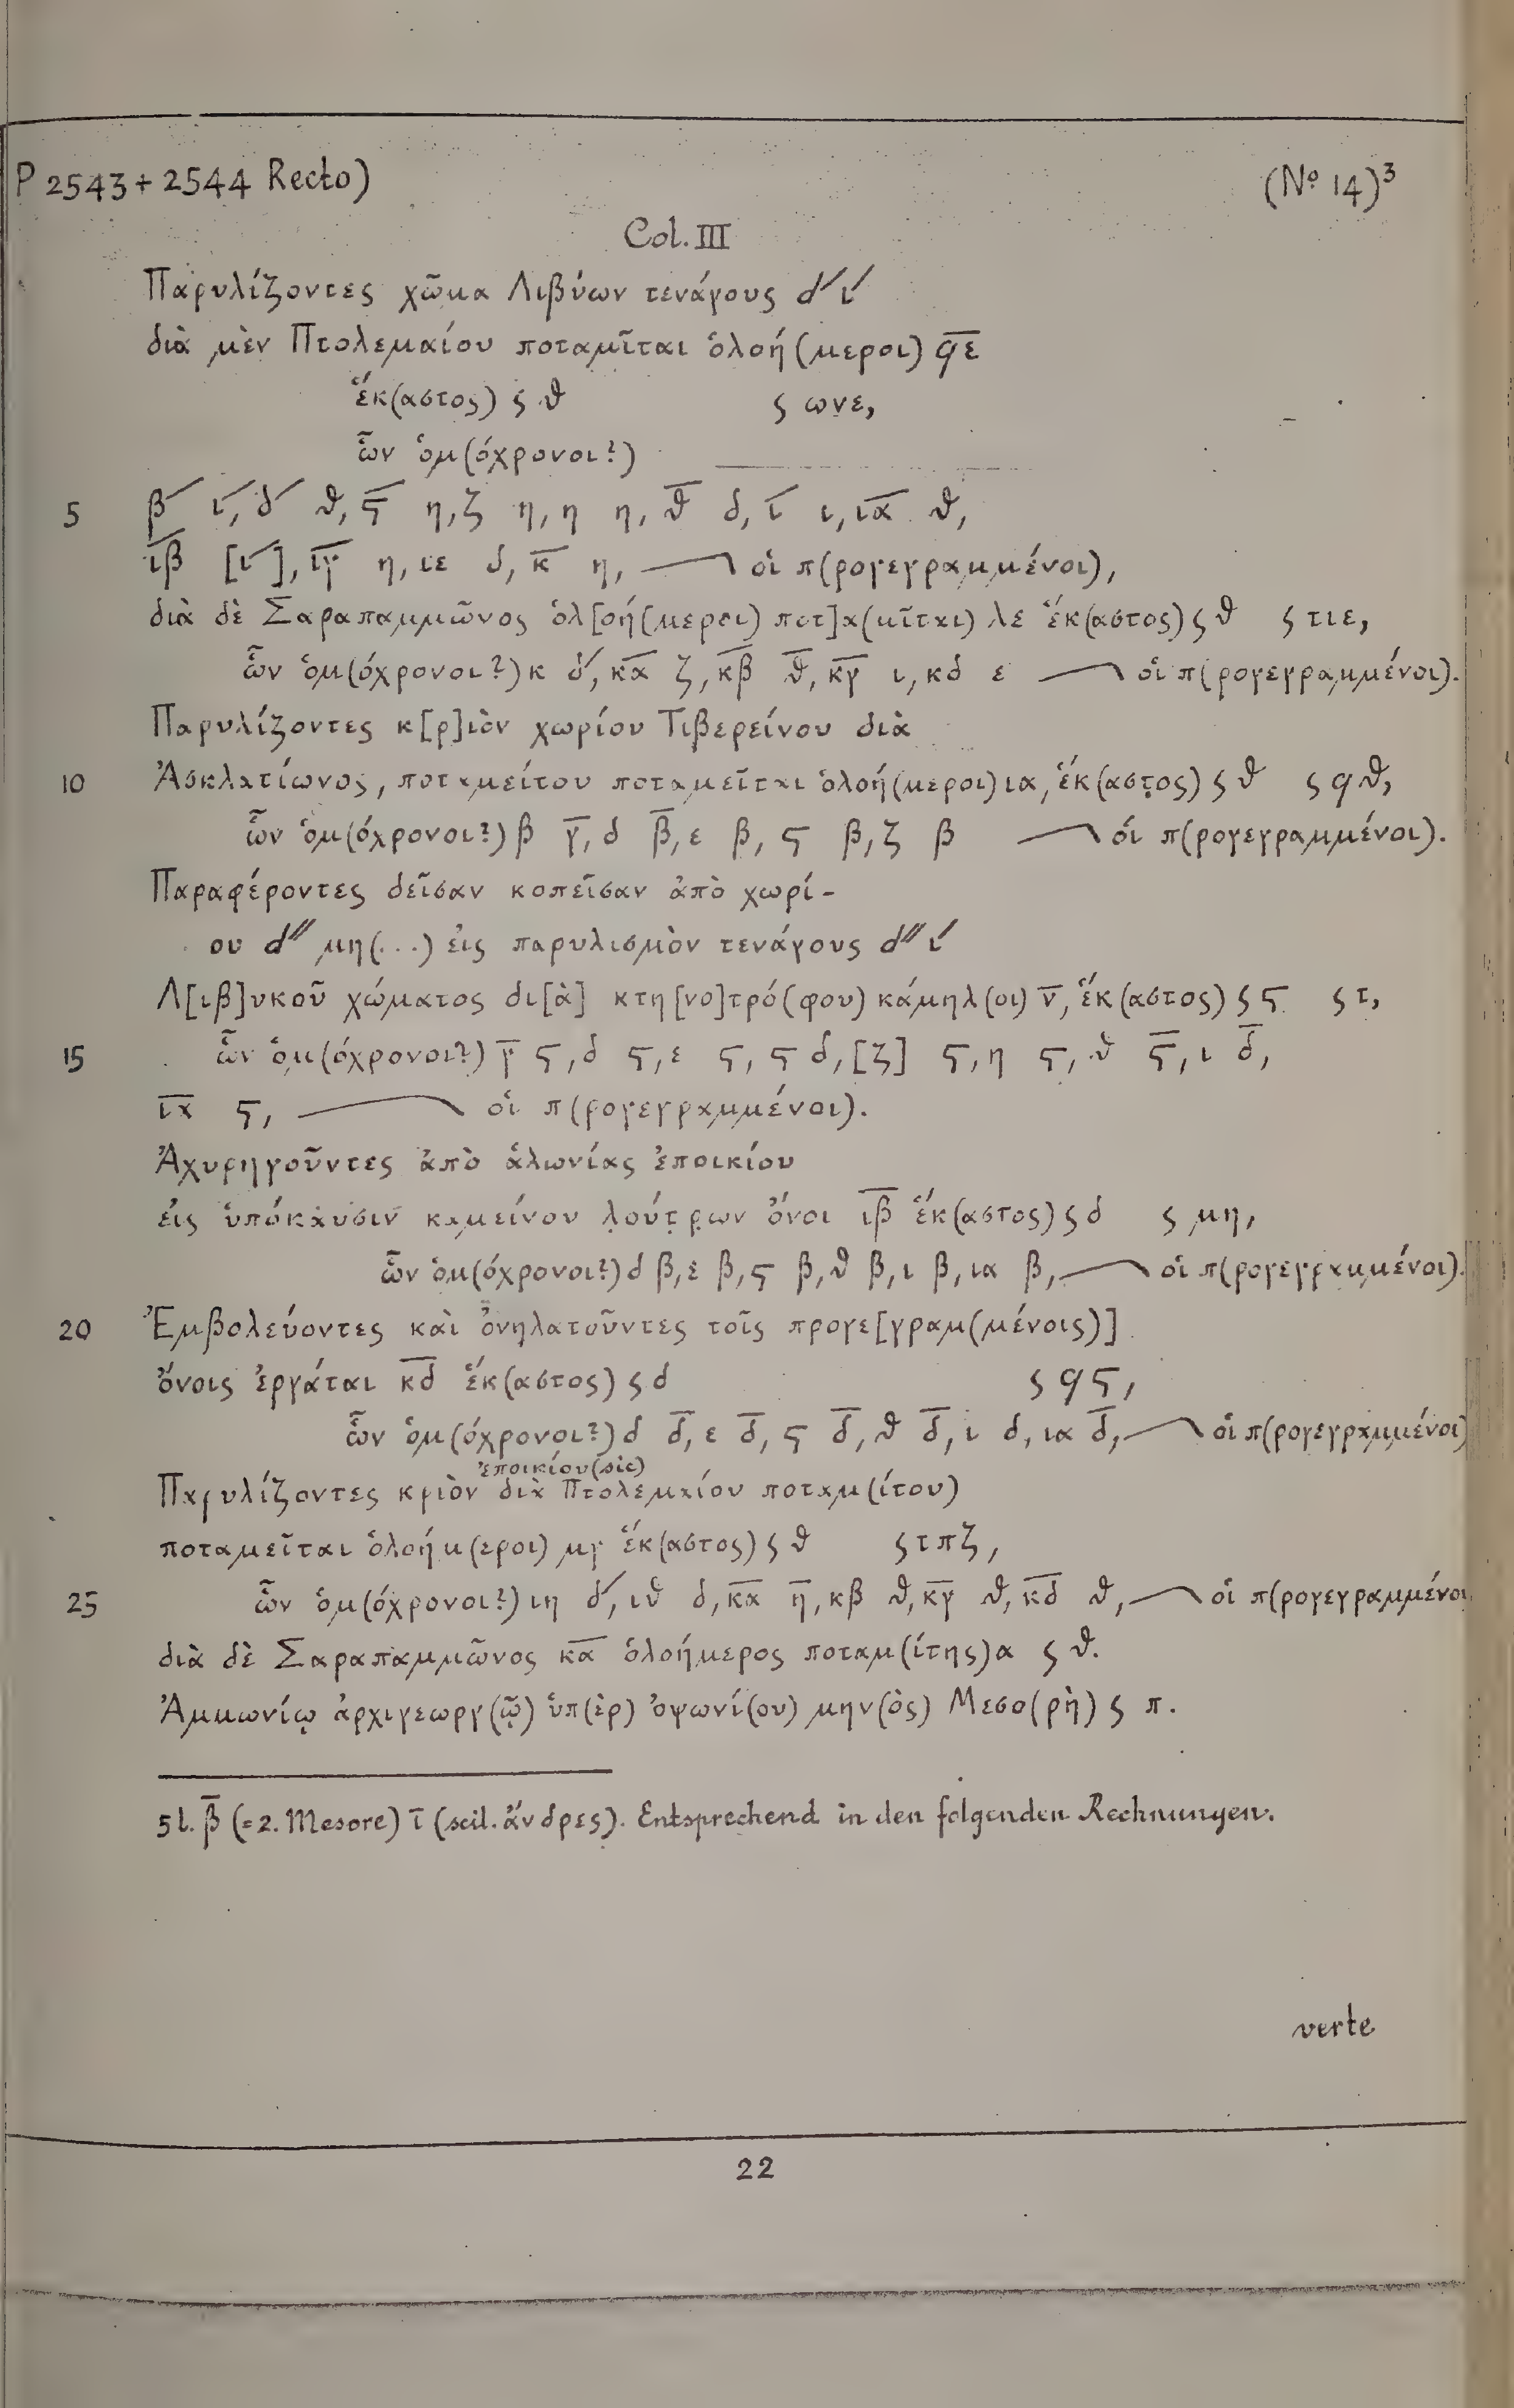 P 2543 + 2544 Recto) (Nº 14)³
Col. III
Παρυλίζοντες χῶμα Λιβύων τενάγους δ´ ί
διὰ μὲν Πτολεμαίου ποταμῖται ὁλοή(μεροι) ϙ̅ε̅
ἕκ(αστος) ϛ θ ϛ ωνε,
ὧν ὁμ(όχρονοι?)
5 β´ ί, δ´ θ, ϛ̅ η, ζ η, η η, θ̅ δ, ι̅ ι, ι̅α̅ θ,
ι̅β̅ [ί], ι̅γ̅ η, ιε δ, κ̅ η, οἱ π(ρογεγραμμένοι),
διὰ δὲ Σαραπαμμῶνος ὁλ[οή(μεροι) ποτ]α(μῖται) λε ἕκ(αστος) ϛ θ ϛ τιε,
ὧν ὁμ(όχρονοι?) κ δ´, κ̅α̅ ζ, κ̅β̅ θ̅, κ̅γ̅ ι, κδ ε οἱ π(ρογεγραμμένοι).
Παρυλίζοντες κ[ρ]ιὸν χωρίου Τιβερείνου διὰ
10 Ἀσκλατίωνος, ποταμείτου ποταμεῖται ὁλοή(μεροι) ια, ἕκ(αστος) ϛ θ ϛ ϙθ,
ὧν ὁμ(όχρονοι?) β γ̅, δ β̅, ε β, ϛ β, ζ β οἱ π(ρογεγραμμένοι).
Παραφέροντες δεῖσαν κοπεῖσαν ἀπὸ χωρί-
ου δ´´ μη(...) εἰς παρυλισμὸν τενάγους δ´´ ί
Λ[ιβ]υκοῦ χώματος δι[ὰ] κτη[νο]τρό(φου) κάμηλ(οι) ν̅, ἕκ(αστος) ϛ ϛ ϛ τ,
15 ὧν ὁμ(όχρονοι?) γ̅ ϛ, δ ϛ, ε ϛ, ϛ δ, [ζ] ϛ, η ϛ, θ ϛ̅, ι δ̅,
ι̅α̅ ϛ, οἱ π(ρογεγραμμένοι).
Ἀχυρηγοῦντες ἀπὸ ἁλωνίας ἐποικίου
εἰς ὑπόκαυσιν καμείνου λούτρων ὄνοι ι̅β̅ ἕκ(αστος) ϛ δ ϛ μη,
ὧν ὁμ(όχρονοι?) δ β, ε β, ϛ β, θ β, ι β, ια β, οἱ π(ρογεγραμμένοι).
20 Ἐμβολεύοντες καὶ ὀνηλατοῦντες τοῖς προγε[γραμ(μένοις)]
ὄνοις ἐργάται κ̅δ̅ ἕκ(αστος) ϛ δ ϛ ϙϛ,
ὧν ὁμ(όχρονοι?) δ δ̅, ε δ̅, ϛ δ̅, θ δ̅, ι δ, ια δ̅, οἱ π(ρογεγραμμένοι)
ἐποικίου (sic)
Παρυλίζοντες κριὸν διὰ Πτολεμαίου ποταμ(ίτου)
ποταμεῖται ὁλοήμ(εροι) μγ ἕκ(αστος) ϛ θ ϛ τπζ,
25 ὧν ὁμ(όχρονοι?) ιη δ´, ιθ δ, κ̅α̅ η̅, κβ θ, κ̅γ̅ θ, κ̅δ̅ θ, οἱ π(ρογεγραμμένοι
διὰ δὲ Σαραπαμμῶνος κ̅α̅ ὁλοήμερος ποταμ(ίτης) α ϛ θ.
Ἀμμωνίῳ ἀρχιγεωργ(ῷ) ὑπ(ὲρ) ὀψωνί(ου) μην(ὸς) Μεσο(ρὴ) ϛ π.
5 l. β̅ (= 2. Mesore) ι̅ (scil. ἄνδρες). Entsprechend in den folgenden Rechnungen.
verte
22